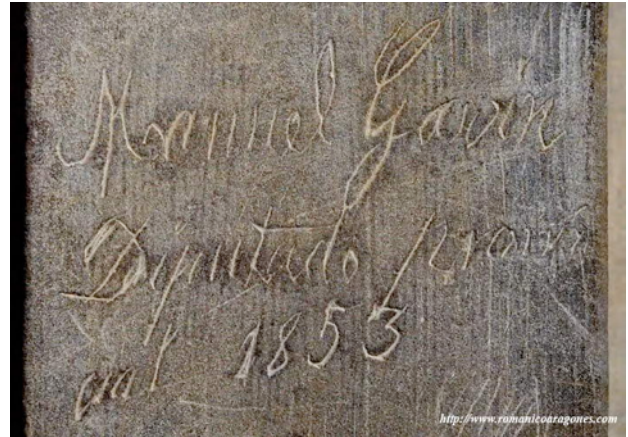 Manuel Gavín
Diputado provin
cial 1853
http://www.romanicoaragones.com